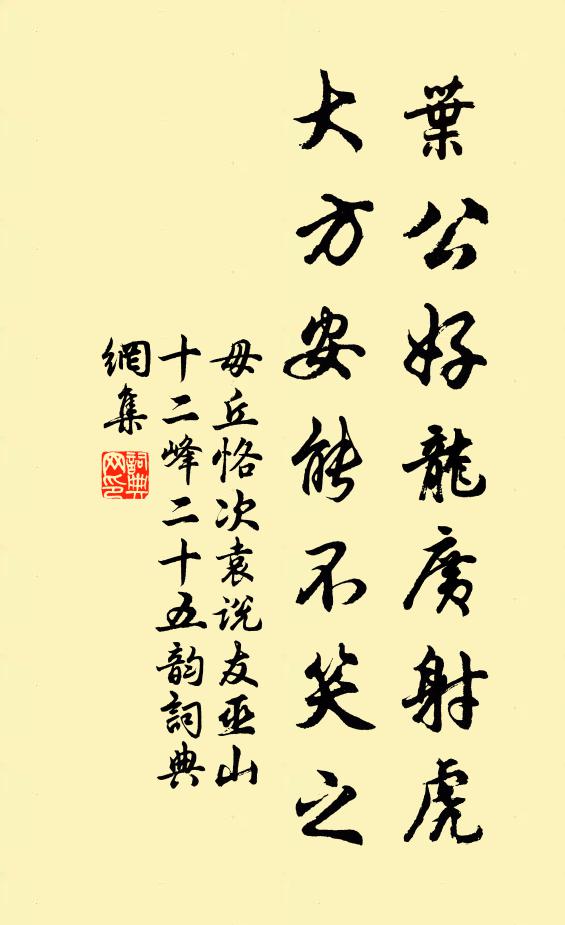 葉公好龍廣射虎
大方安能不笑之
毋丘恪次袁说友巫山
十二峰二十五韵詞典
網集
詞典
网印